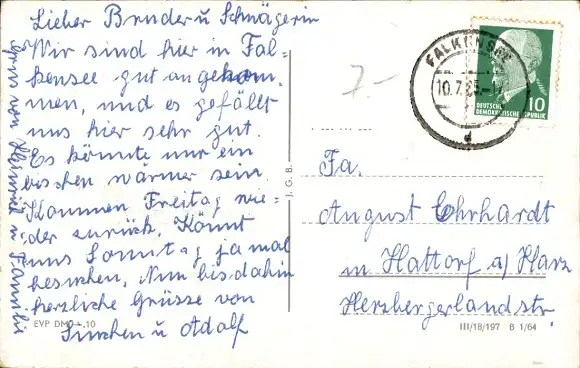 Lieber Bruder u Schnägerin
Wir sind hier in Fal-
kensee gut angekom-
men, und es gefällt
uns hier sehr gut.
Es könnte nur ein
bischen warmer sein.
Kommen Freitag wie-
der zurück. Könnt
uns Sonntag ja mal
besuchen. Nun bis dahin
herzliche Grüsse von
u Adolf
Gruss von Heinrich u Familie
EVP DM
10
J. G. B.
7.-
FALKENSEE
10.7.65
d
DEUTSCHE
DEMOKRATISCHE REPUBLIK
10
Fa.
August Ehrhardt
in Hattorf a/ Harz
Herzbergerlandstr.
III/18/197 B 1/64